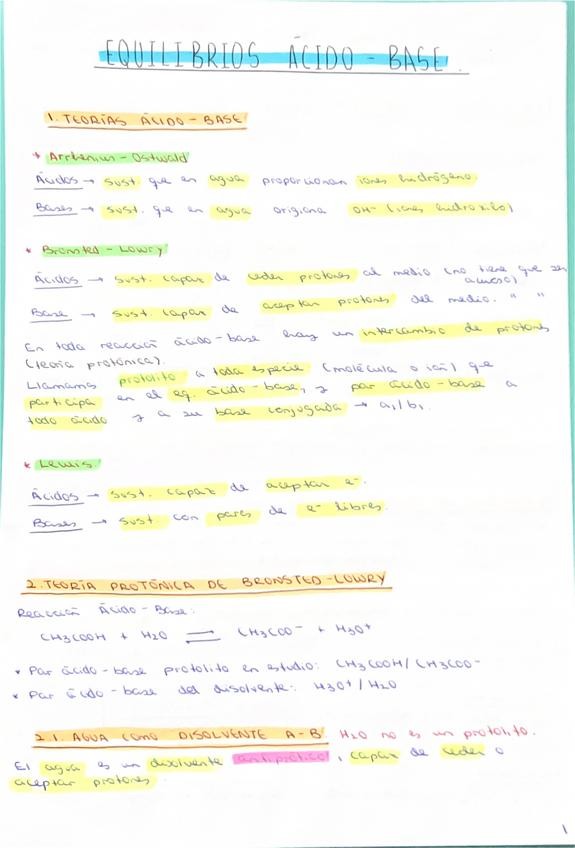 EQUILIBRIOS ÁCIDO - BASE.
1. TEORÍAS ÁCIDO - BASE
* Arrhenius - Ostwald
Ácidos → sust. que en agua proporcionan iones hidrógeno.
Bases → sust. que en agua origina OH- (iones hidroxilo)
* Bronsted - Lowry
Ácidos → sust. capaz de ceder protones al medio (no tiene que ser
acuoso)
Base → sust. capaz de aceptar protones del medio. " "
En toda reacción ácido-base hay un intercambio de protones
(teoría protónica).
Llamamos protolito a toda especie (molécula o ión) que
participa en el eq. ácido-base, y par ácido-base a
todo ácido y a su base conjugada → a1/b1.
* Lewis
Ácidos → sust. capaz de aceptar e-.
Bases → sust con pares de e- libres.
2. TEORÍA PROTÓNICA DE BRONSTED-LOWRY
Reacción Ácido-Base:
CH3COOH + H2O ⇌ CH3COO- + H3O+
* Par ácido-base protolito en estudio: CH3COOH/CH3COO-
* Par ácido-base del disolvente: H3O+/H2O
2.1. AGUA COMO DISOLVENTE A-B H2O no es un protolito.
El agua es un disolvente antiprótico, capaz de ceder o
aceptar protones.
1